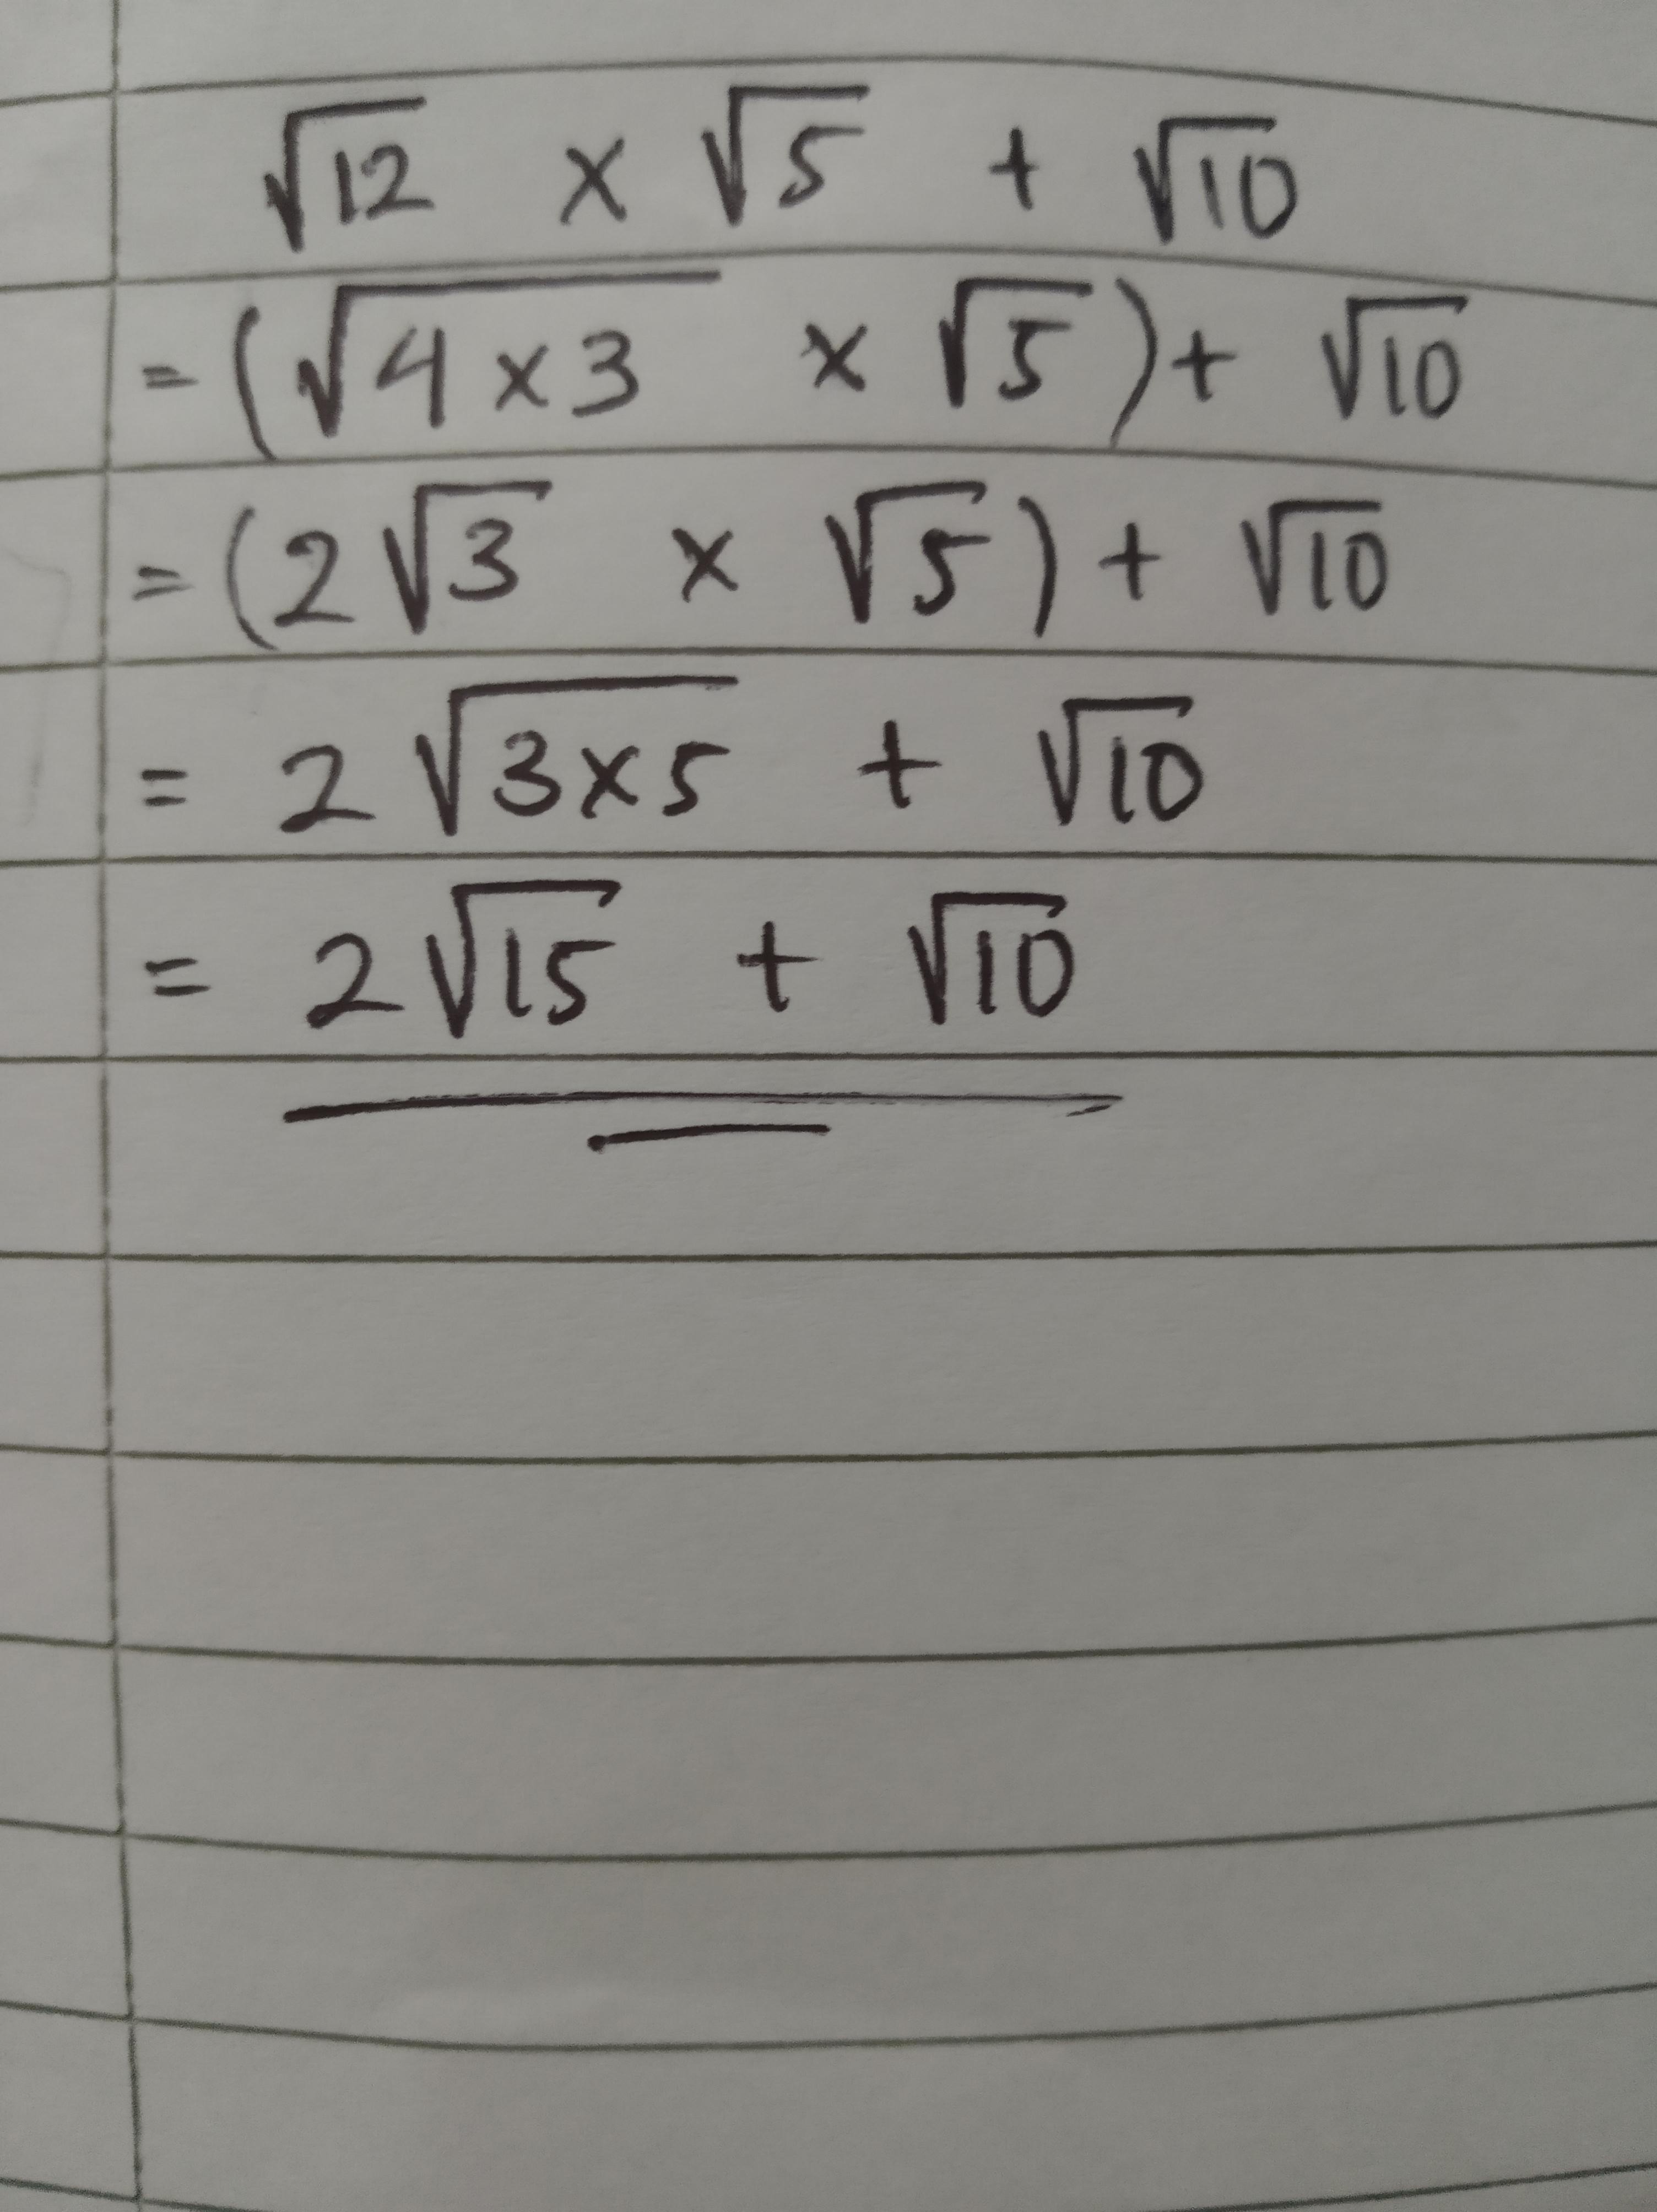 √12 × √5 + √10
= (√4×3 × √5) + √10
= (2√3 × √5) + √10
= 2√3×5 + √10
= 2√15 + √10